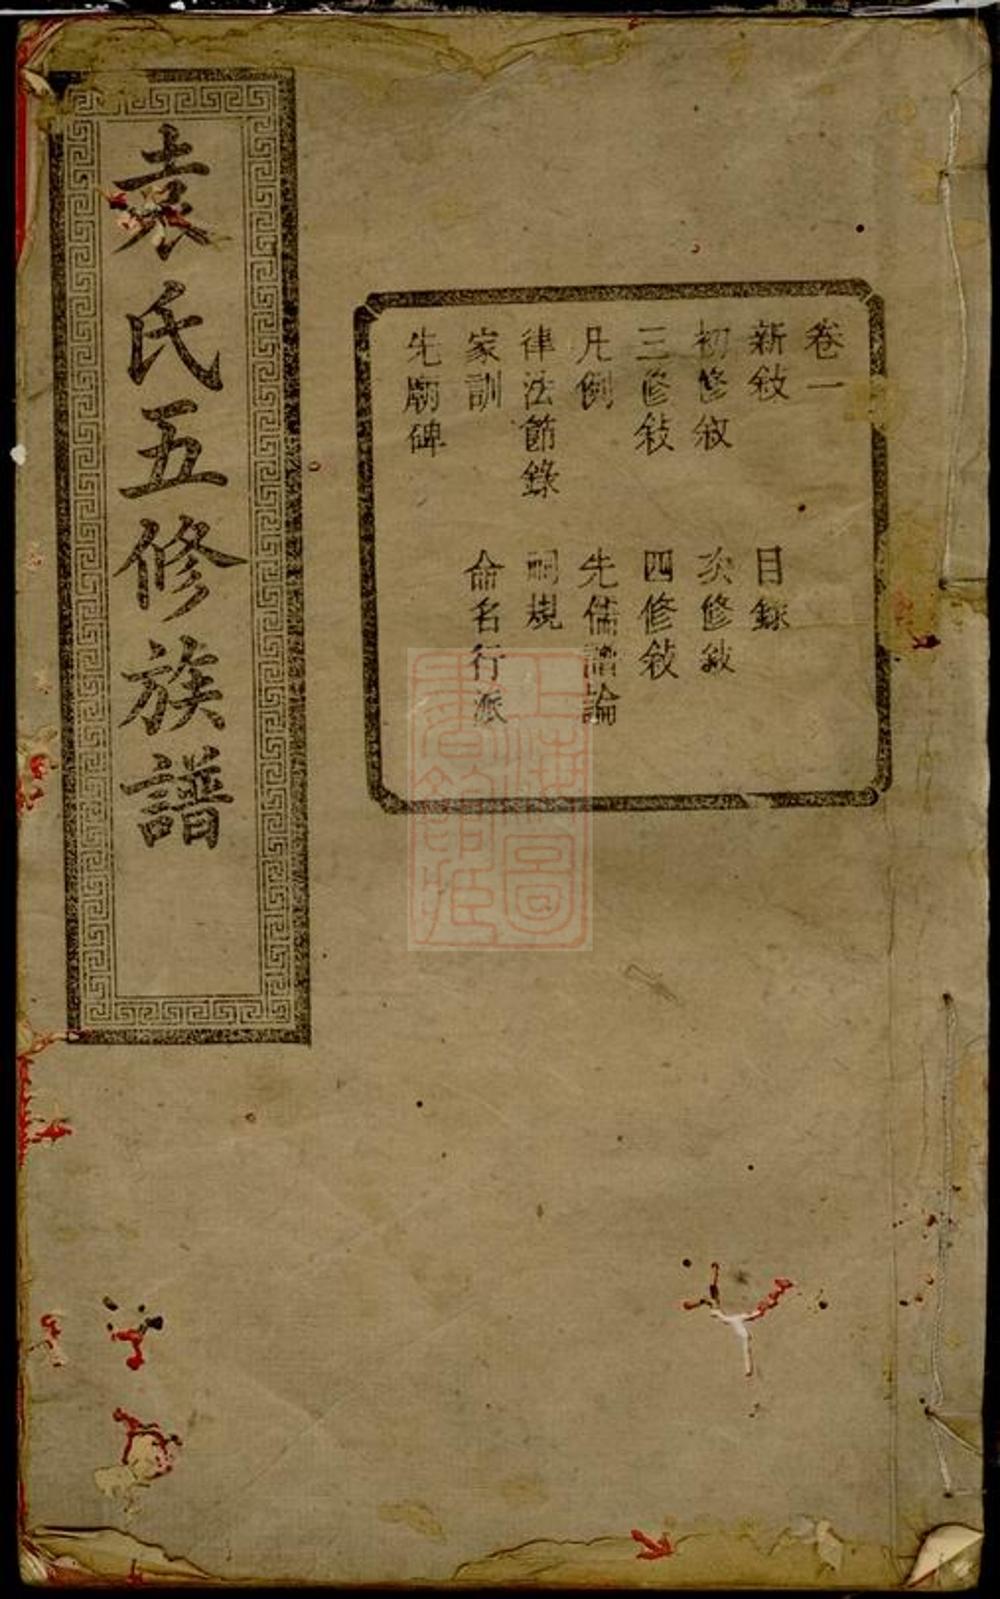 卷一
新敍 目錄
初修敍 次修敍
三修敍 四修敍
凡例 先儒譜論
律法節錄 祠規
家訓 命名行派
先廟碑
袁氏五修族譜
上海圖書館藏